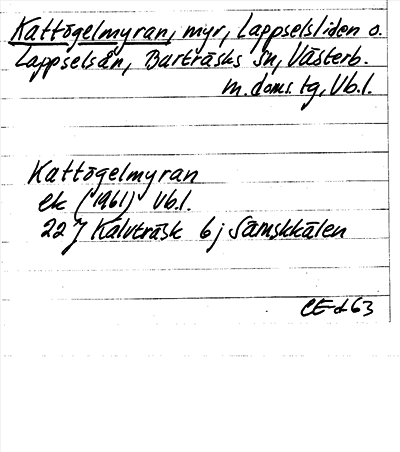 Kattögelmyran, myr, Lappselsliden o.
Lappselsån, Burträsks sn, Västerb.
m. doms.tg, Vb.l.
Kattögelmyran
ek (1961) Vb.l.
22 J Kalvträsk 6 j Sämskkälen
CE-d 63